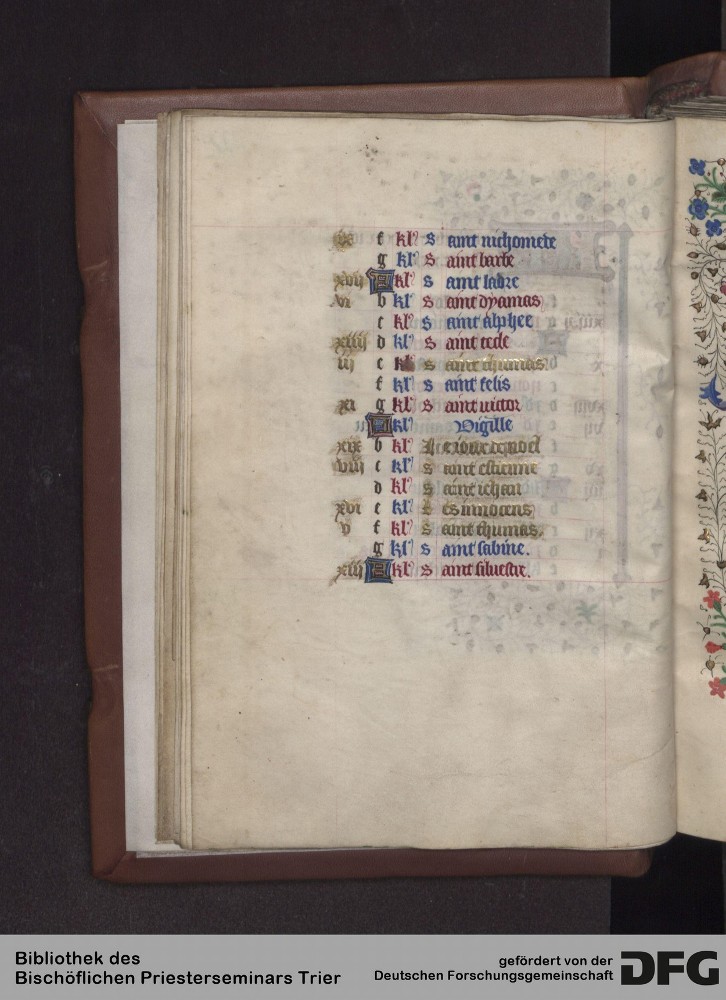 ix f kl' Saint nichomede
g kl' Saint barbe
xvij A kl' Saint ladre
vi b kl' Saint dyamas
c kl' Saint alphee
xiiij d kl' Saint tecle
iij e kl' Saint thumas
f kl' Saint felis
xi g kl' Saint uictor
A kl' Vigille
xix b kl' Le iour de noel
viij c kl' Saint estienne
d kl' Saint iehan
xvi e kl' Les innocens
v f kl' Saint thumas.
g kl' Saint sabine.
xiij A kl' Saint siluestre.
Bibliothek des
Bischöflichen Priesterseminars Trier
gefördert von der
Deutschen Forschungsgemeinschaft
DFG